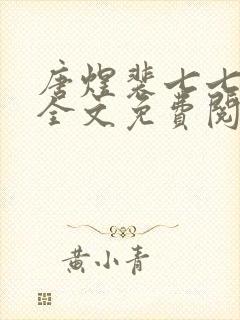 唐煜裴七七
全文免費閱
黄小青